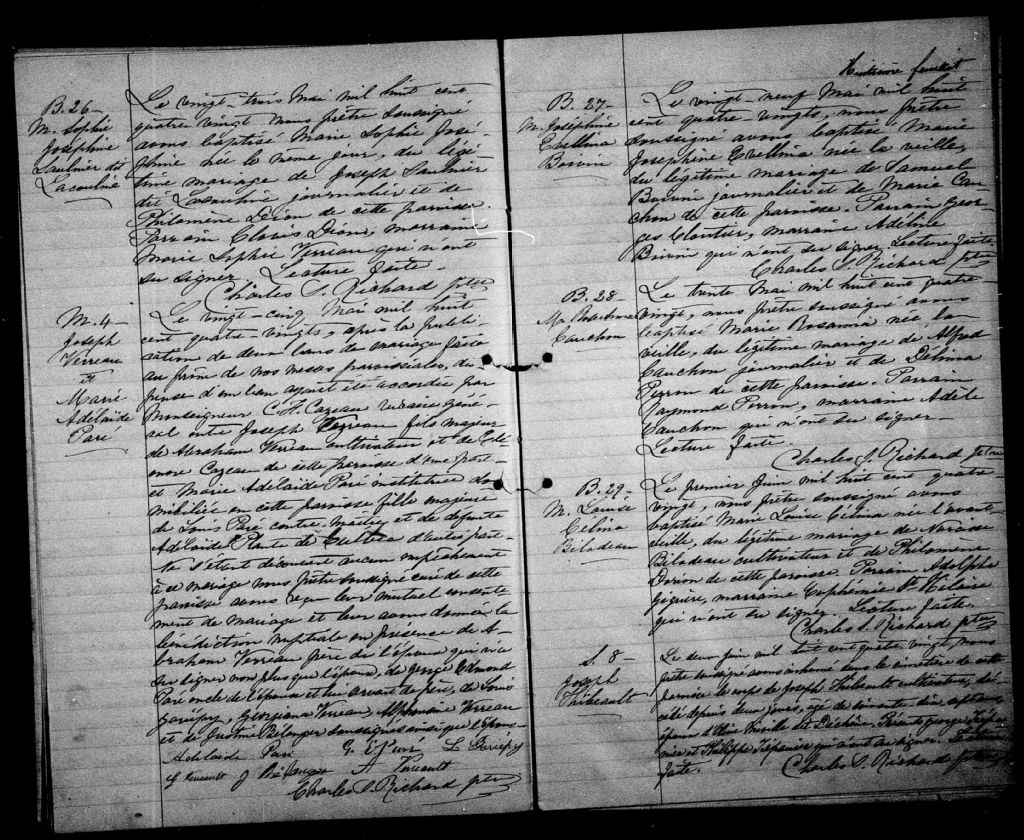 B. 26
M. Sophie
Joséphine
Saulnier dit
Lacouline
Le vingt-trois Mai mil huit cent
quatre vingt nous prêtre soussigné
avons baptisé Marie Sophie José-
phine née le même jour, du légi-
time mariage de Joseph Saulnier
dit journalier et de
Philomène Dion de cette paroisse.
Parrain Cloris Dion, marraine
Marie Sophie Verreau qui n'ont
su signer. Lecture faite.
Charles S. Richard ptre
M. 4
Joseph
Verreau
et
Marie
Adélaide
Paré
Le vingt-cinq Mai mil huit
cent quatre vingts, après la publi-
cation de deux bans de mariage faite
au prône de nos messes paroissiales, dis-
pense d'un ban ayant été accordée par
Monseigneur C. F. Cazeau vicaire géné-
ral entre Joseph Verreau fils majeur
de Abraham Verreau cultivateur et de Eléo-
nore Cazeau de cette paroisse d'une part
et Marie Adélaide Paré institutrice do-
miciliée en cette paroisse fille majeure
de Louis Paré contre-maître et de défunte
Adélaide Plante de d'autre part
ne s'étant découvert aucun empêchement
à ce mariage nous prêtre soussigné curé de cette
paroisse avons reçu leur mutuel consente-
ment de mariage et leur avons donné la
bénédiction nuptiale en présence de A-
braham Verreau père de l'époux qui n'a
su signer non plus que l'époux, de George Edmond
Paré oncle de l'épouse et lui servant de père, de Louis
Gariépy, Georgiana Verreau, Alphonsine Verreau
et de Gustine Belanger soussignés ainsi que l'épouse
Adelaide Paré L. Gariépy
G Verreault J Bélanger A Verreault
Charles S. Richard ptre
Huitième feuillet
B. 27
M. Joséphine
Evellina
Boivin
Le vingt-neuf Mai mil huit
cent quatre-vingts, nous prêtre
soussigné avons baptisé Marie
Joséphine Evellina née la veille,
du légitime mariage de Samuel
Boivin journalier et de Marie Cau-
chon de cette paroisse. Parrain Geor-
ges Cloutier, marraine Adéline
Boivin qui n'ont su signer. Lecture faite.
Charles S. Richard ptre
B. 28
M. Rose Anna
Cauchon
Le trente Mai mil huit cent quatre-
vingt, nous prêtre soussigné avons
baptisé Marie Rosanna née la
veille, du légitime mariage de Alfred
Cauchon journalier et de Delvina
Perron de cette paroisse. Parrain
Raymond Perron, marraine Adèle
Cauchon qui n'ont su signer
Lecture faite.
Charles S. Richard ptre
B. 29
M. Louise
Célina
Bilodeau
Le premier Juin mil huit cent quatre
vingt, nous prêtre soussigné avons
baptisé Marie Louise Célina née l'avant
veille, du légitime mariage de Narcisse
Bilodeau cultivateur et de Philomène
Dorion de cette paroisse. Parrain Adolphe
Giguère, marraine Euphémie St Hilaire
qui n'ont su signer. Lecture faite.
Charles S. Richard ptre
S. 8
Joseph
Thibeault
Le deux juin mil huit cent quatre vingt, nous
prêtre soussigné avons inhumé dans le cimetière de cette
paroisse le corps de Joseph Thibeault cultivateur, dé-
cédé depuis deux jours, agé de soixante dix sept ans
époux d'Olive Miville dit Dechêne. Présents George
et Philippe qui n'ont su signer. Lecture
faite.
Charles S. Richard ptre